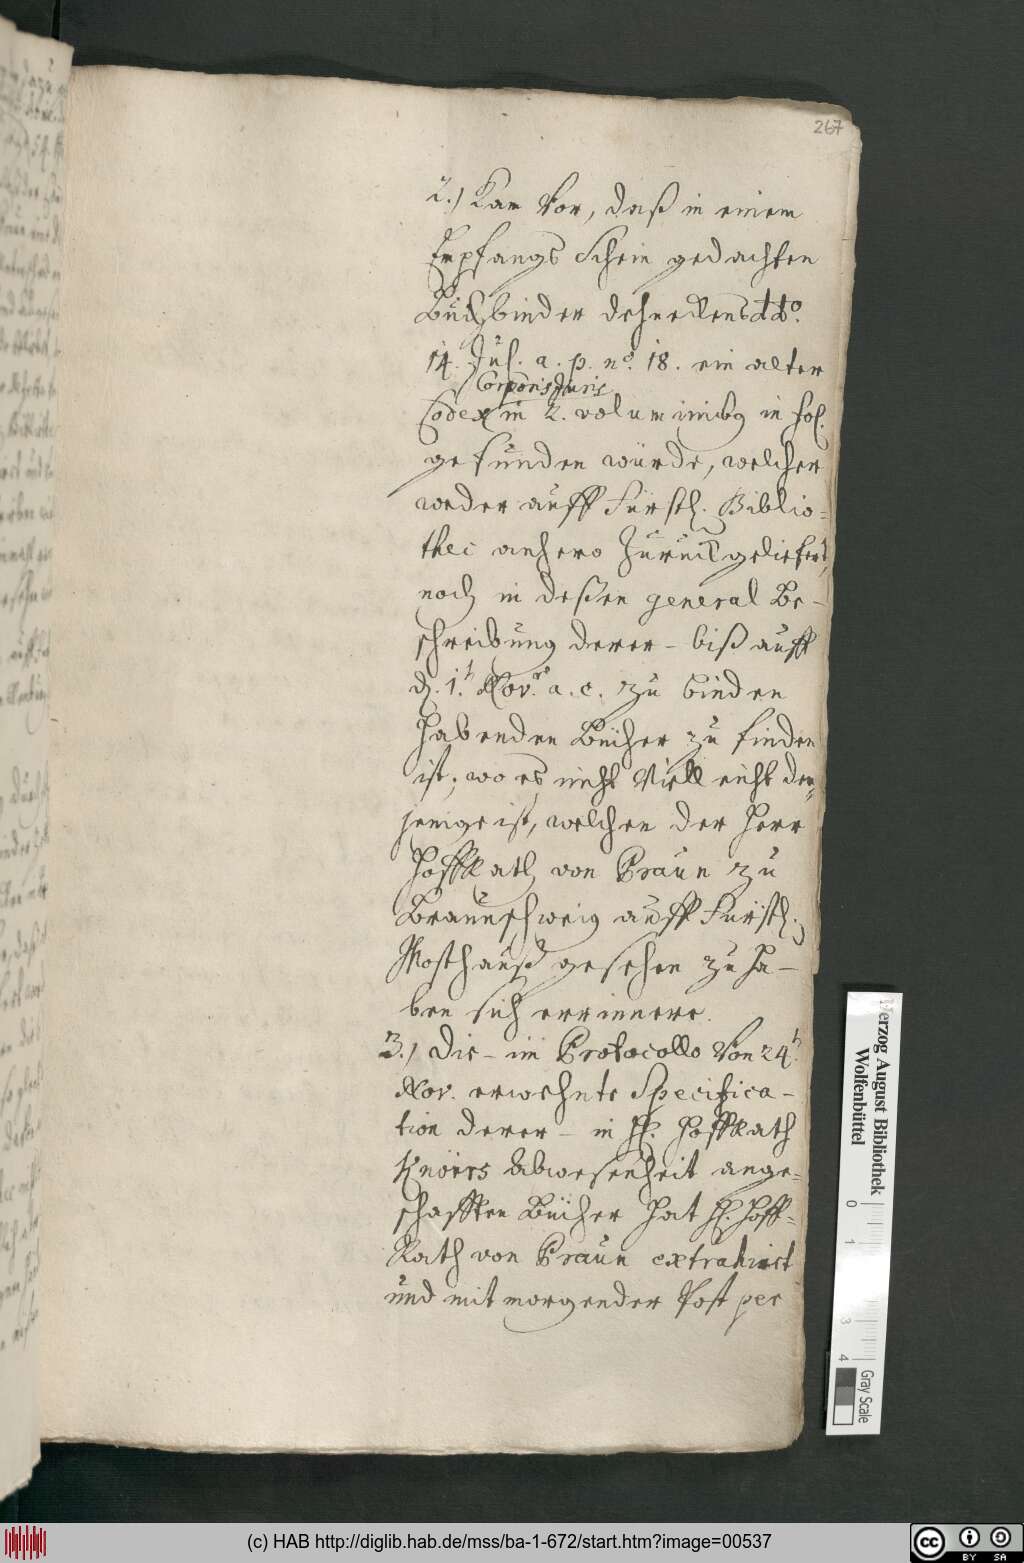 267
2.) Kam vor, daß in einem
Empfangs Schein gedachten
Buchbinder Dehneckens ddo.
14. Jul. a. p. no. 18. ein alter
Corporis Juris
Codex in 2. voluminibg in fol.
gefunden würde, welcher
weder auff Fürstl. Biblio=
thec anhero zurück geliefert,
noch in deßen general Be-
schreibung derer - biß auff
d. 1. Nov. a. c. zu binden
habenden Bücher zu finden
ist; wo es nicht vielleicht der=
jenige ist, welchen der Herr
HoffRath von Praun zu
Braunschweig auff Fürstl.
Mosthauß gesehen zu ha-
ben sich errinnere.
3.) Die - im Protocollo von 24.
Nov. erwehnte Specifica-
tion derer - in H. HoffRath
Knörs Abwesenheit ange=
schafften Bücher hat H. Hoff=
Rath von Praun extrahirt
und mit morgender Post per
Herzog August Bibliothek
Wolfenbüttel
0 1 3 4
Gray Scale
(c) HAB http://diglib.hab.de/mss/ba-1-672/start.htm?image=00537
cc BY SA